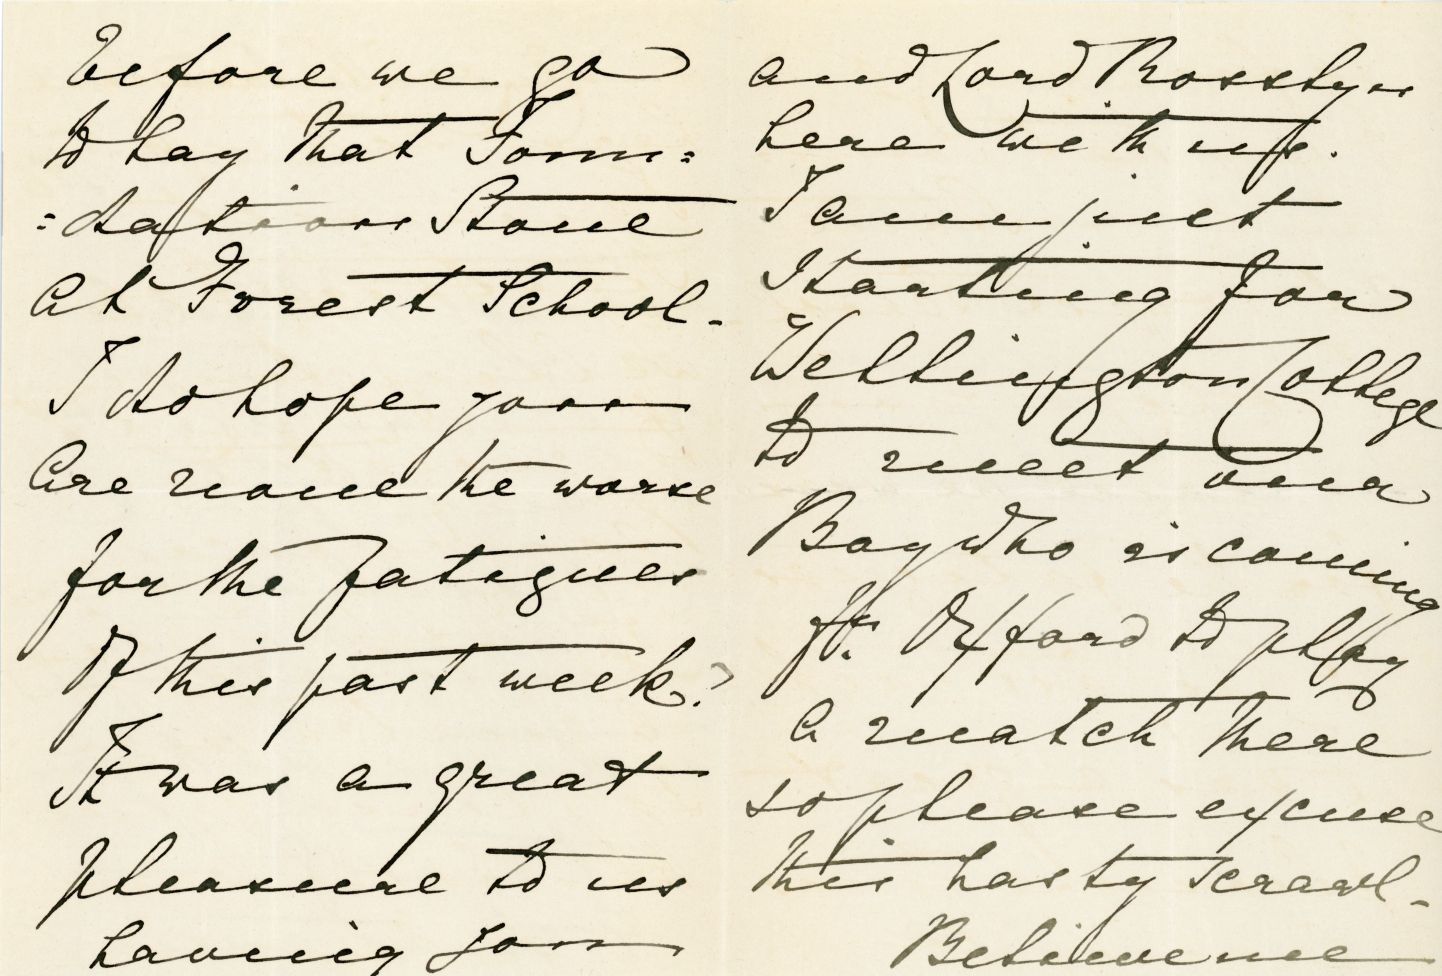 before we go
to lay that Foun=
=dation Stone
at Forest School.
I do hope you
are none the worse
for the fatigues
of this past week?
It was a great
pleasure to us
having you
and Lord Rosslyn
here with us.
I am just
starting for
Wellington College
to meet our
Boy who is coming
fr. Oxford to play
a match there
so please excuse
this hasty scrawl.
Believe me